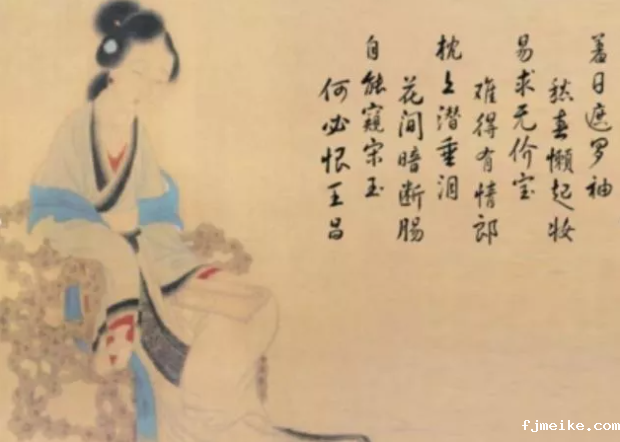 羞日遮罗袖
愁春懒起妆
易求无价宝
难得有情郎
枕上潜垂泪
花间暗断肠
自能窥宋玉
何必恨王昌
fjmeike.com